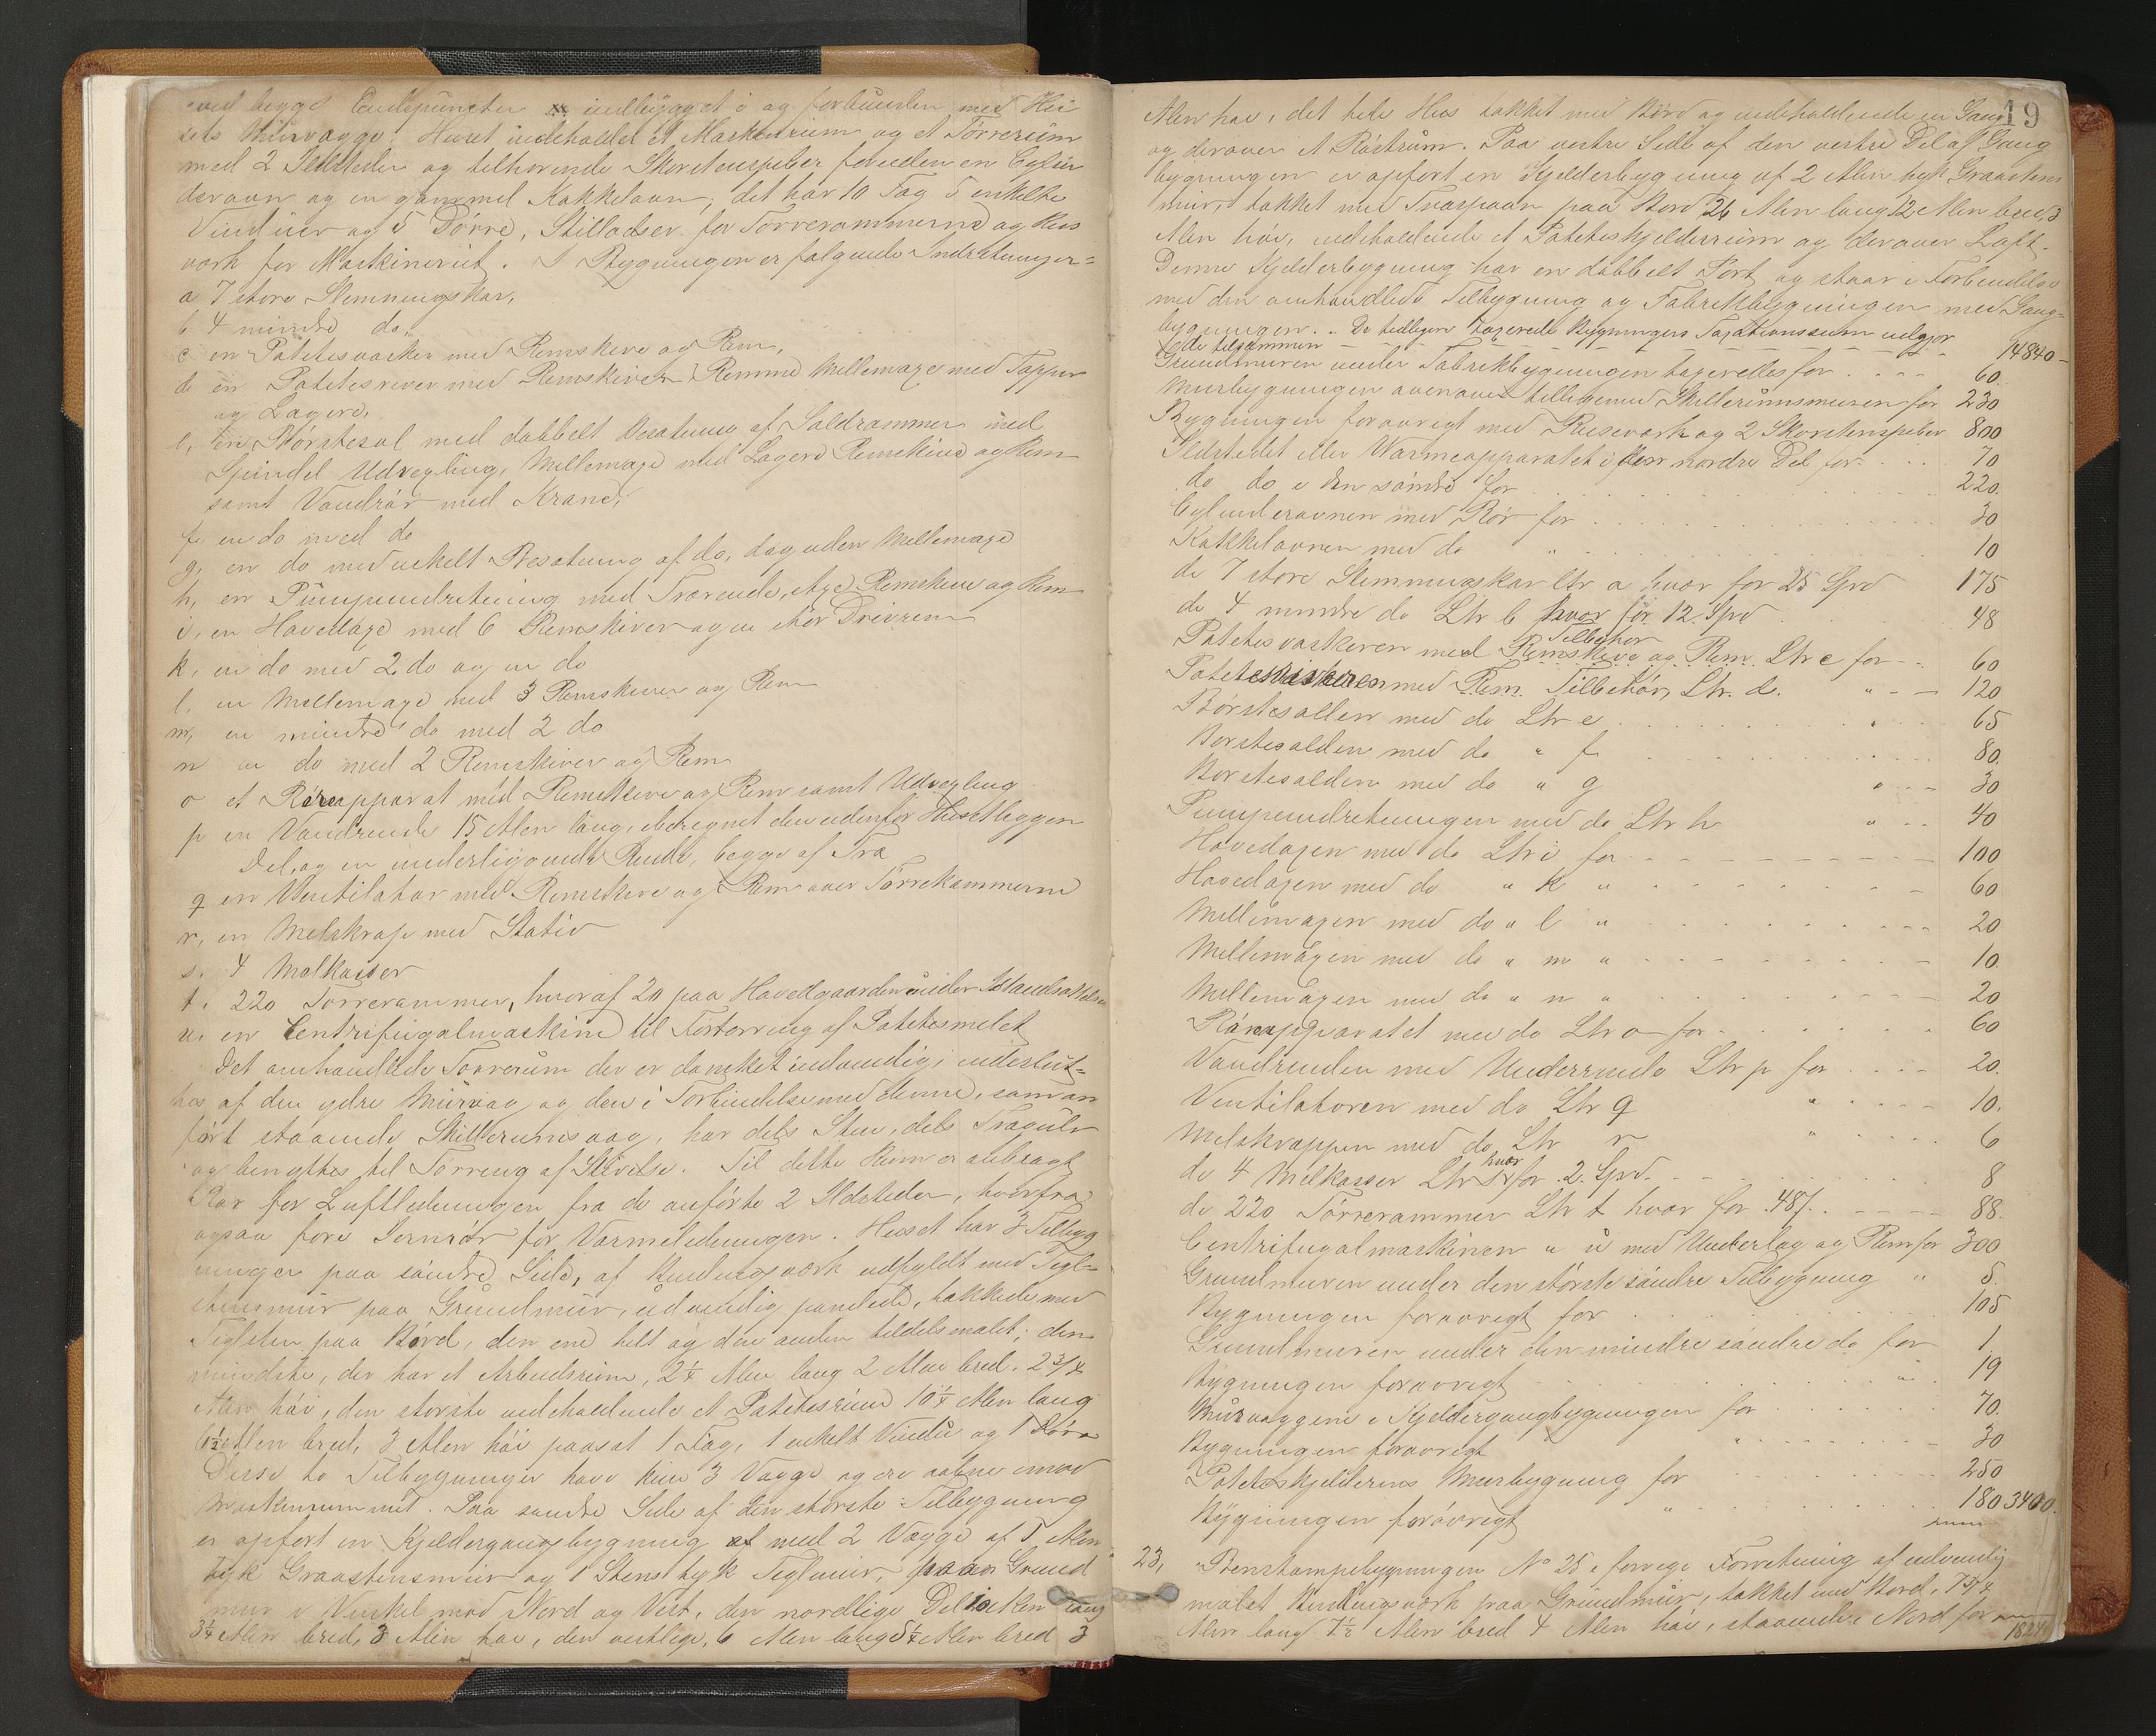 ved begge Endepuncter xx indbygget i og forbunden med Hu-
sets Muurvægge. Huset indeholdt et Maskinrum og et Tørrerum
med 2 Ildsteder og tilhørende Skorstenspiber foruden en Cylin
derovn og en gammel Kakkelovn, det har 10 Fag 5 enkelte
Vinduer og 5 Dørre, Stilladser for Tørrerammerne og Huus
værk for Maskineriet. I Bygningen er følgende Indretninger=
a 7 store Slemningskar,
b 4 mindre do,
c en Potetesvasker med Remskive og Rem,
d en Potetesriver med Remskiver Remme Mellemaxe med Tapper
og Lagere,
e, en Børstesol med dobbelt Besætning af Soldrammer med
Spindel Udvexling, Mellemaxe med Lagere Remskive og Rem
samt Vandrør med Krane,
f. en do med do
g, en do med enkelt Besætning af do, dog uden Mellemaxe
h, en Pumpeindretning med Trærende, Axe, Remskive og Rem
i, en Hovedaxe med 6 Remskiver og en stor Drivrem
k, en do med 2 do og en do
l. en Mellemaxe med 3 Remskiver og Rem
m, en mindre do med 2 do
n en do med 2 Remskiver og Rem
o et Røreapparat med Remskive og Rem samt Udvexling
p en Vandrende 15 Alen lang, iberegnet den udenfor Huset liggen
Del, og en underliggende Rende, begge af Træ
q en Ventilator med Remskive og Rem over Tørrekammerne
r, en Melskrape med Stativ
s. 4 Melkasser
t. 220 Tørrerammer, hvoraf 20 paa Hovedgaarden under Istandsættelse
u. en Centrifugalmaskine til Fortørring af Potetesmelet
Det omhandlede Tørrerum der er dansket indvendig, indeslut=
tes af den ydre Muurvæg og den i Forbindelse med denne, som an
ført staaende Skillerumsvæg, har dels Sten, dels Trægulv
og benyttes til Tørring af Stivelse. Til dette Rum er anbragt
Rør for Luftledningen fra de anførte 2 Ildsteder, hvorfra
ogsaa føre Jernrør for Varmeledningen. Huset har 3 Tilbyg
ninger paa søndre Side, af Bindingsværk udfyldt med Tegl-
stensmur paa Grundmur, udvendig panelede, takkede med
Teglsten paa Bord, den ene helt og den anden tildels malet; den
mindste, der har et Arbeidsrum, 2¼ Alen lang 2 Alen bred. 2¾
Alen høi, den største indeholdende et Potetesrum 10¼ Alen lang
6½ Alen bred, 3 Alen høi paasat 1 Fag, 1 enkelt Vindu og 1 Dørr
Disse to Tilbygninger have kun 3 Vægge og ere aabne imod
Maskinrummet. Paa søndre Side af den største Tilbygning
er opført en Kjeldergangsbygning af med 2 Vægge af 1 Alen
tyk Graastensmur og 1 Stens tyk Teglmur, paa Grund
mur i Vinkel mod Nord og Vest, den nordlige Del 10 Alen lang
3¼ Alen bred, 3 Alen høi, den vestlige, 6 Alen lang 5¼ Alen bred 3
19
Alen høi, det hele Hus takket med Bord og indeholdende en Gang
og derover et Røstrum. Paa vestre Side af den vestre Del af Gang
bygningen er opført en Kjelderbygning af 2 Alen tyk Graastens
mur, takket med Træspaan paa Bord 26 Alen lang 12 Alen bred, 3
Alen høi, indeholdende et Poteteskjelderrum og derover Loft.
Denne Kjelderbygning har en dobbelt Port og staar i Forbindelse
med den omhandlede Tilbygning og Fabrikbygningen med Gang-
bygningen. - De tidligere taxerede Bygningers Taxationssum udgjør
ialt tilsammen 14840-
Grundmuren under Fabrikbygningen taxeredes for 60.
Murbygningen ovenover tilligemed Skillerumsmuren for 230
Bygningen forøvrigt med Reisverk og 2 Skorstenspiber 800
Ildstedet eller Varmeapparatet i den nordre Del for 70
do do i den søndre for 220.
Cylinderovnen med Rør for 30
Kakkelovnen med do " 10
de 7 store Slemningskar Ltr a hver for 25 Spd 175
de 4 mindre do Ltr b hver for 12 Spd 48
Tilbehør
Potetesvaskeren med Remskive og Rem Ltr c for 60
Potetesriveren med Rem. Tilbehør, Ltr. d. " 120
Børstesollen med do Ltr e " 65
Børstesolden med do " f 80.
Børstesolden med do " g " 30
Pumpeindretningen med do Ltr h " 40
Hovedaxen med do Ltr i for 100
Hovedaxen med do " k " 60
Mellemaxen med do " l " 20
Mellemaxen med do " m " 10.
Mellemaxen med do " n " 20
Røreapparatet med do Ltr o for 60
Vandrenden med Underrende Ltr p for 20.
Ventilatoren med do Ltr q " 10.
Melskrappen med do Ltr r " 6
hver
de 4 Melkasser Ltr s for 2 Spd. 8
de 220 Tørrerammer Ltr t hver for 48/. 88.
Centrifugalmaskinen " u med Underlag og Rem for 300
Grundmuren under den største søndre Tilbygning " 5.
Bygningen forøvrigt for 105
Grundmuren under den mindre søndre do for 1
Bygningen forøvrigt " 19
Murvæggene i Kjeldergangbygningen for 70.
Bygningen forøvrigt " 30
Poteteskjelderens Murbygning for 250
Bygningen forøvrigt " 180 3400.
23, Benstampebygningen No 25 i forrige Forretning af udvendig
malet Bindingsværk paa Grundmur, takket med Bord, 7¾
Alen lang 7½ Alen bred 4 Alen høi, staaende i Nord for
1824